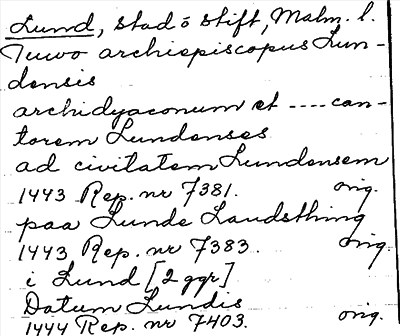 Lund, stad o stift, Malm. l.
Tuwo archiepiscopus Lun-
densis
archidyaconum et ---- can-
torem Lundenses
ad civitatem Lundensem
1443 Rep. nr 7381. orig.
paa Lunde Landsthing
1443 Rep. nr 7383. orig.
i Lund [2 ggr]
Datum Lundis
1444 Rep. nr 7403. orig.